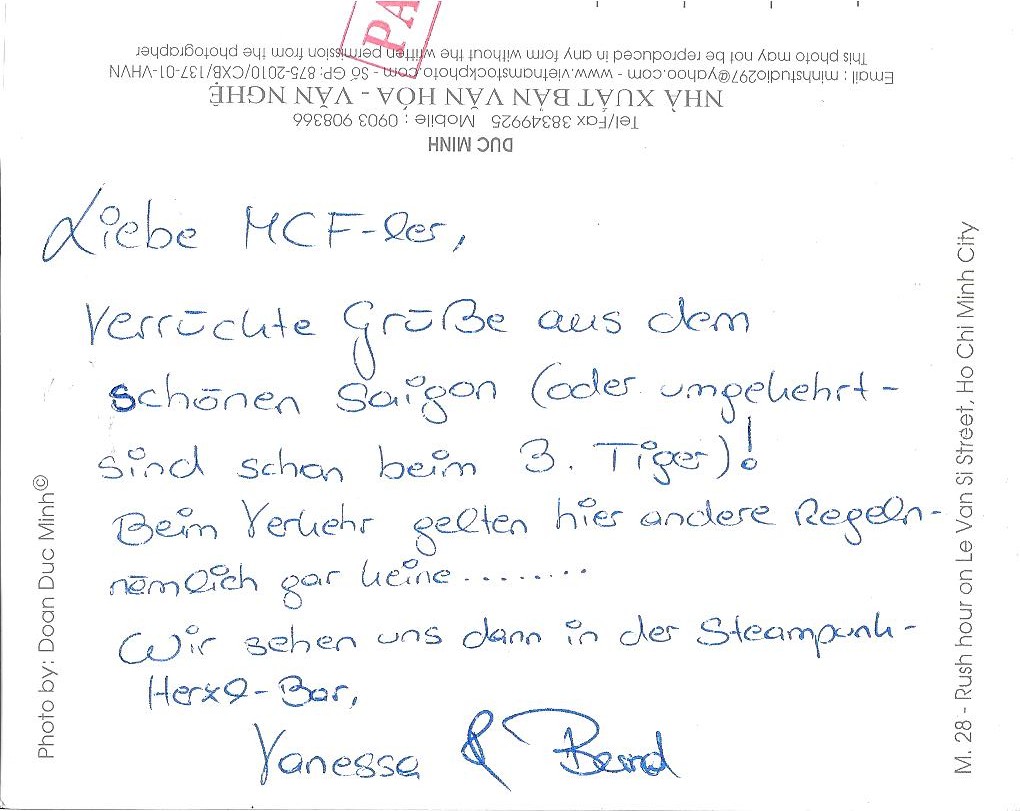 PA
This photo may not be reproduced in any form without the written permission from the photographer
Email : minhstudio297@yahoo.com - www.vietnamstockphoto.com - Số GP: 875-2010/CXB/137-01-VHVN
NHÀ XUẤT BẢN VĂN HÓA - VĂN NGHỆ
Tel/Fax 38349925 Mobile : 0903 908366
DUC MINH
Liebe MCF-ler,
Verrückte Grüße aus dem
schönen Saigon (oder umgekehrt-
sind schon beim 3. Tiger)!
Beim Verkehr gelten hier andere Regeln-
nämlich gar keine........
Wir sehen uns dann in der Steampunk-
Herzl-Bar,
Vanessa & Bernd
Photo by: Doan Duc Minh©
M. 28 - Rush hour on Le Van Si Street, Ho Chi Minh City